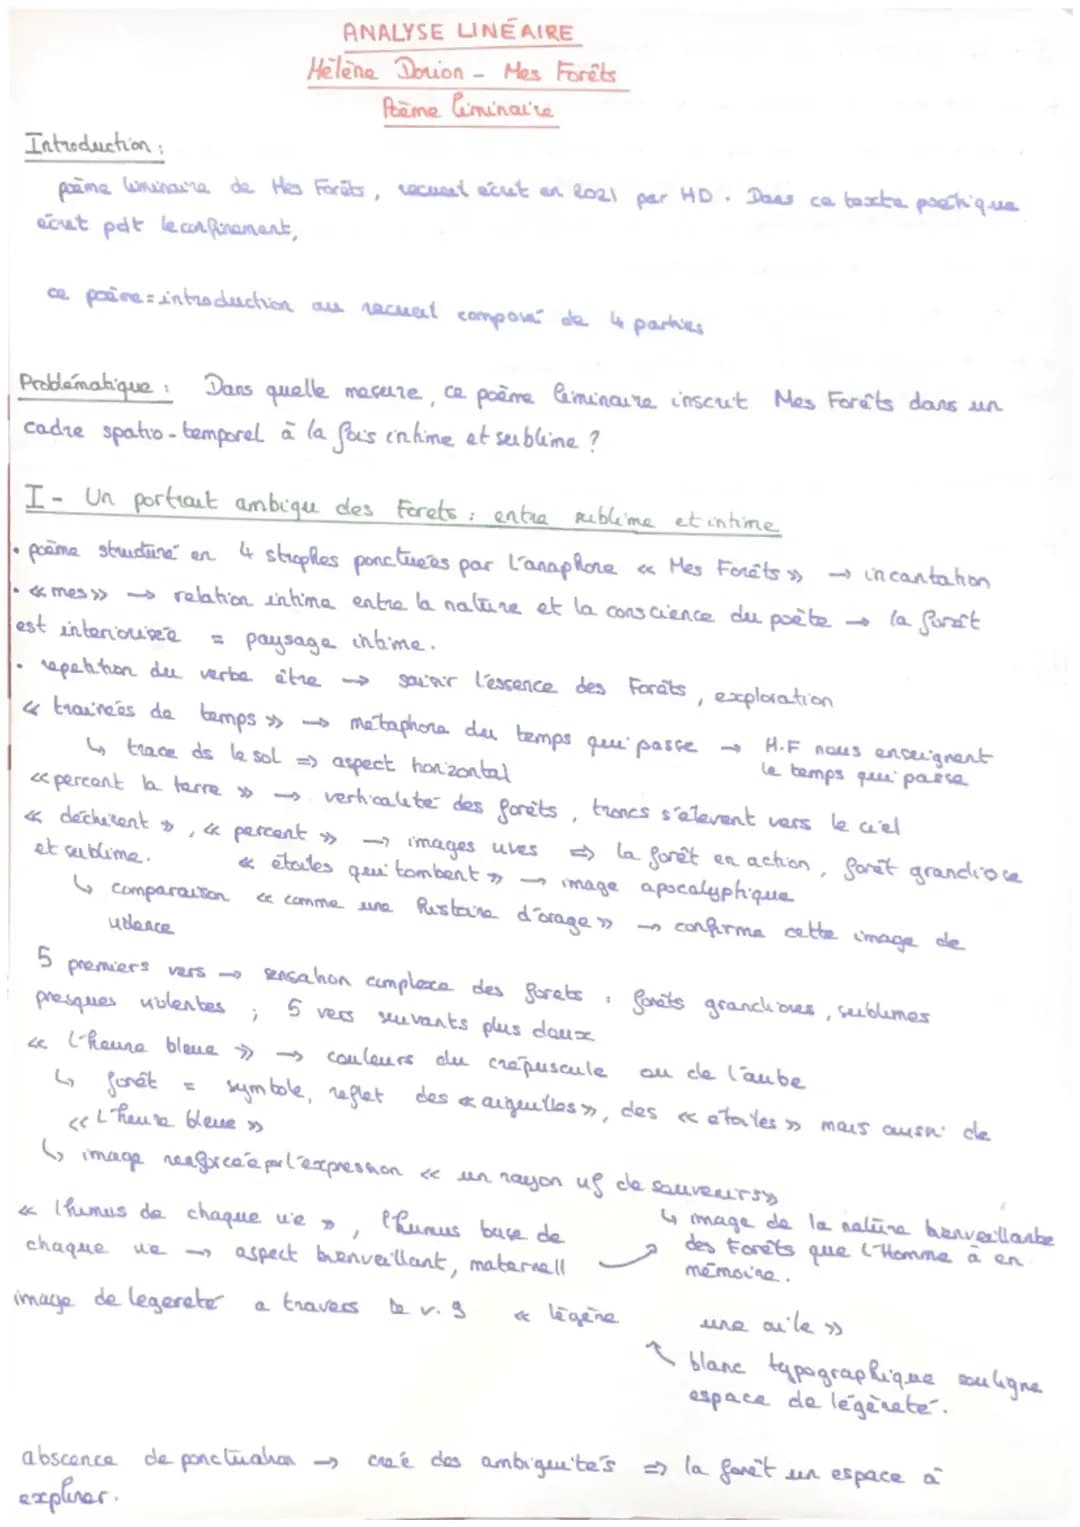 ANALYSE LINÉAIRE
Hélène Dorion - Mes Forêts
Poème liminaire
Introduction :
poème liminaire de Mes Forêts, recueil écrit en 2021 par HD. Dans ce texte poétique
écrit pdt le confinement,
ce poème = introduction au recueil composé de 4 parties
Problématique : Dans quelle mesure, ce poème liminaire inscrit Mes Forêts dans un
cadre spatio-temporel à la fois intime et sublime ?
I - Un portrait ambigu des Forets : entre sublime et intime
• poème structuré en 4 strophes ponctuées par l'anaphore « Mes Forêts » → incantation
• « mes » → relation intime entre la nature et la conscience du poète → la forêt
est interiorisée = paysage intime.
• repetition du verbe être → saisir l'essence des Forêts, exploration
« trainées de temps » → métaphore du temps qui passe → H.F nous enseignent
le temps qui passe
↳ trace ds le sol => aspect horizontal
« percent la terre » → verticalité des forêts, troncs s'élevent vers le ciel
« déchirent », « percent » → images vives => la forêt en action, forêt grandiose
et sublime.
« étoiles qui tombent » → image apocalyptique
↳ comparaison « comme une histoire d'orage » → confirme cette image de
violence
5 premiers vers → sensation complexe des forets : forêts grandioses, sublimes
presques violentes ; 5 vers suivants plus doux
« l'heure bleue » → couleurs du crépuscule ou de l'aube
↳ forêt = symbole, reflet des « aiguilles », des « etoiles » mais aussi de
« L'heure bleue »
↳ image renforcée par l'expression « un rayon vif de souvenirs »
↳ image de la nature bienveillante
des Forêts que l'Homme à en
mémoire.
« l'humus de chaque vie », l'humus base de
chaque vie → aspect bienveillant, maternell
image de legereté a travers le v. 9 « légère une aile »
↖ blanc typographique souligne
espace de légèreté.
abscence de ponctuation → creé des ambiguités => la forêt un espace à
explorer.